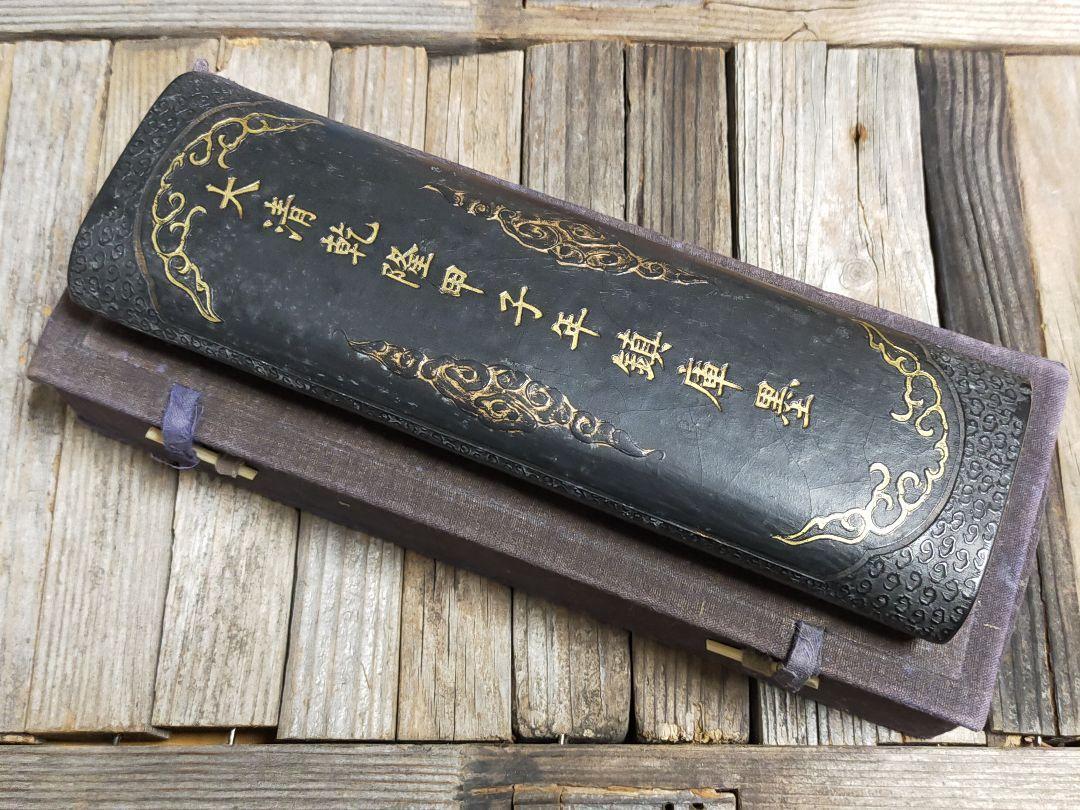 大清乾隆甲子年鎮庫墨